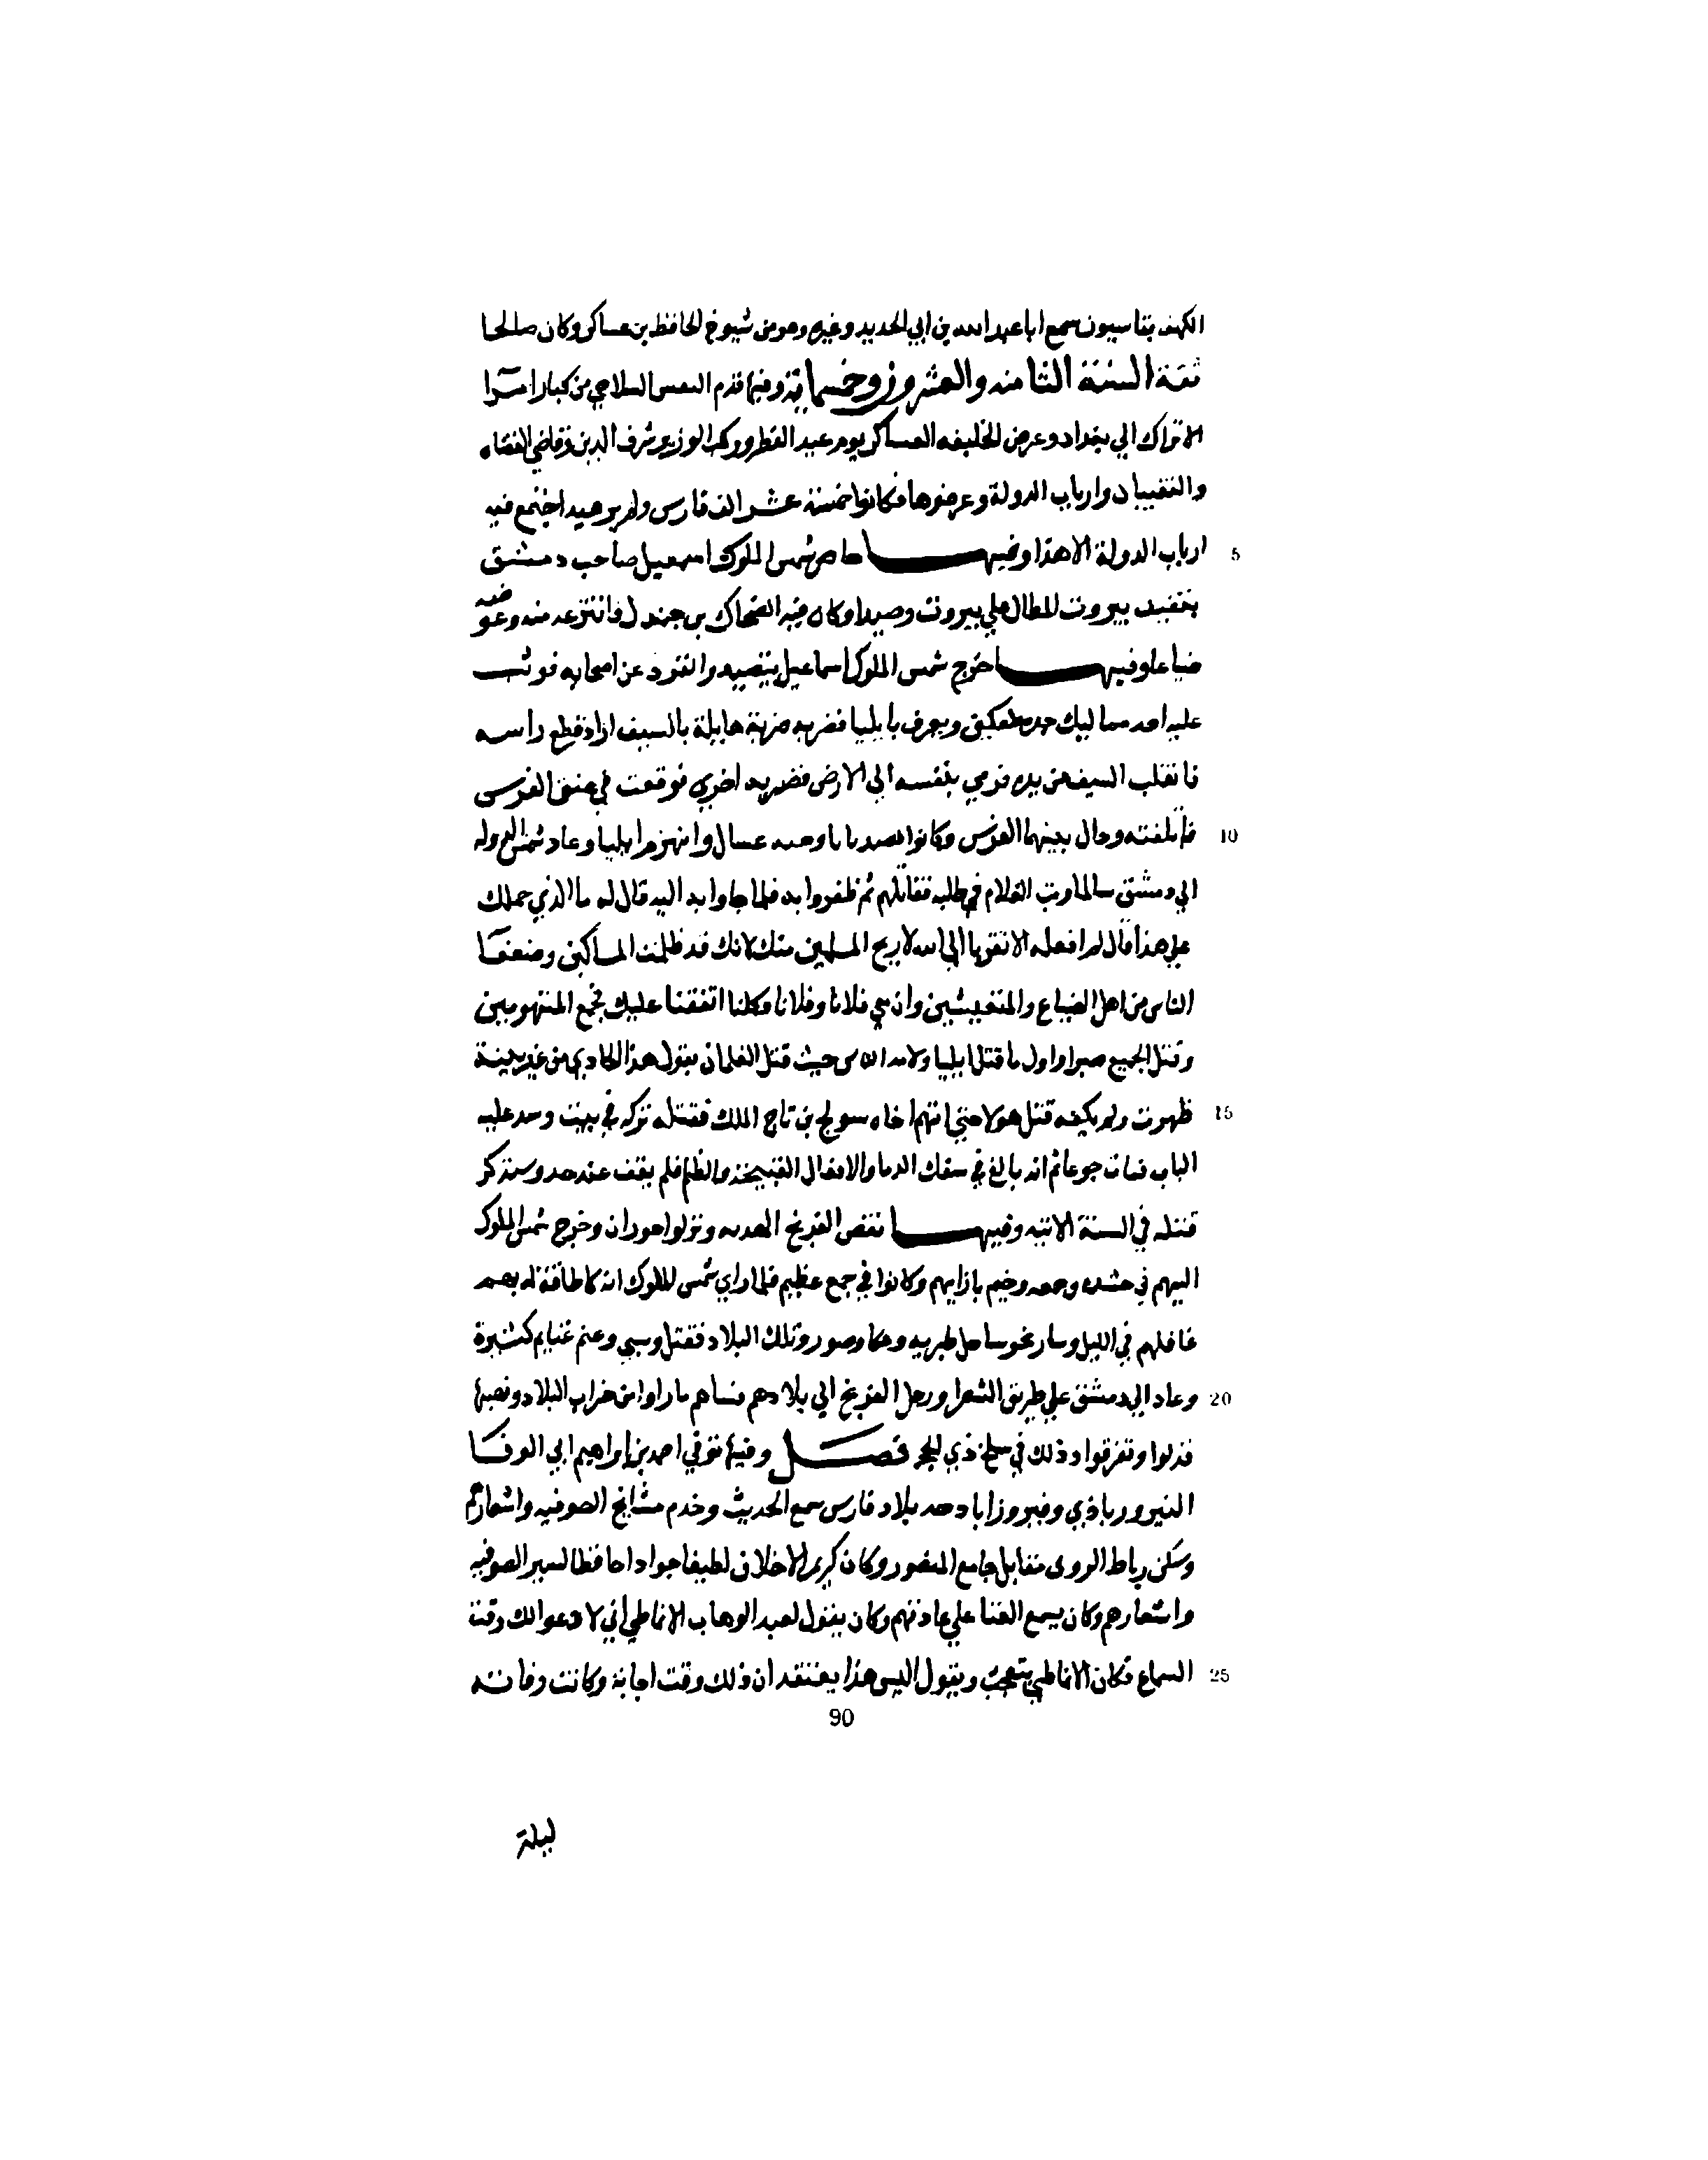 الكهف بقاسيون سمع ابا عبد الله بن ابي الحديد وغيره وهو من شيوخ الحافظ بن عساكر وكان صالحا
ثقة السنة الثامنه والعشرون وخمسماية وفيها قدم السلاحي من كبار امرا
الاتراك الي بغداد وعرض الخليفه العساكر يوم عيد الفطر وركب الوزير شرف الدين وقاضي القضاه
والنقيبان وارباب الدولة وعرضوها فكانوا خمسة عشر الف فارس ولم ير عيد اجتمع فيه
5 ارباب الدولة الا هذا وفيها حاصر شمس الملوك اسمعيل صاحب دمشق
بيروت المطل علي بيروت وصيدا وكان فيه الضحاك بن جندل فانتزعه منه وعوضه
ضياعا وفيها خرج شمس الملوك اسماعيل يتصيد وانفرد عن اصحابه فوثب
عليه احد مماليك جده طغتكين ويعرف بايليا فضربه ضربة هايلة بالسيف اراد قطع راسه
فانقلب السيف من يده فرمي بنفسه الي الارض فضربه اخري فوقعت في عنق الفرس
10 فاتلفته وحال بينهما الفرس وكانوا عسال وانهزم ايليا وعاد شمس الدوله
الي دمشق سالما ورتب الغلام في طلبه فقاتلهم ثم ظفروا به فلما جاوا به اليه قال له ما الذي حملك
علي هذا قال لم افعله الا تقربا الي الله لاريح المسلمين منك لانك قد ظلمت المساكين وضعفا
الناس من اهل الضياع والمتعيشين وان معي فلانا وفلانا وكلنا اتفقنا عليك فجمع المتهومين
وقتل الجميع صبرا واول ما قتل ايليا ولامه الناس حيث قتل الغلمان بقول هذا الجاني من غير بينة
15 ظهرت ولم يكفه قتل هولا حتي اتهم اخاه سونج بن تاج الملك فقتله تركه في بيت وسد عليه
الباب فمات جوعا ثم انه بالغ في سفك الدما والافعال القبيحة والظلم فلم يقف عند حد وسنذكر
قتله في السنة الاتيه وفيها نقض الفرنج الهدنه ونزلوا حوران وخرج شمس الملوك
اليهم في حشده وجمعه وخيم بازايهم وكانوا في جمع عظيم فلما راي شمس الملوك انه لا طاقة له بهم
غافلهم في الليل وسار نحو ساحل طبريه وعكا وصور وتلك البلاد فقتل وسبي وغنم غنايم كثيرة
20 وعاد الي دمشق علي طريق الشعرا ورحل الفرنج الي بلادهم فساهم ما راوا من خراب البلاد ونصبها
فذلوا وتفرقوا وذلك في سلخ ذي الحجة فصل وفيها توفي احمد بن ابراهيم ابي الوفا
الفيروزاباذي وفيروزاباد احد بلاد فارس سمع الحديث وخدم مشايخ الصوفيه واشعارهم
وسكن رباط الزوزني مقابل جامع المنصور وكان كريم الاخلاق لطيفا جوادا حافظا لسير الصوفيه
واشعارهم وكان يسمع الغنا علي عادتهم وكان يقول لعبد الوهاب الانماطي اني لادعوا لك وقت
25 السماع فكان الانماطي يتعجب ويقول اليس هذا يعتقد ان ذلك وقت اجابة وكانت وفاته
90
ليلة